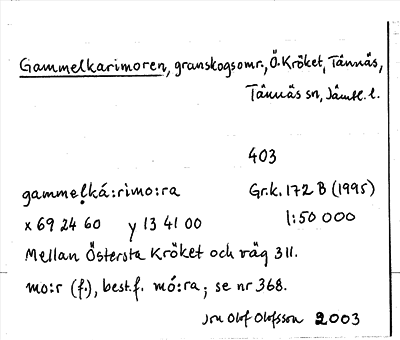 Gammelkarimoren, granskogsomr., Ö. Kröket, Tännäs,
Tännäs sn, Jämtl. l.
403
gammel̥ká:rimo:ra Gr.k. 172 B (1995)
x 69 24 60 y 13 41 00 1:50 000
Mellan Östersta Kröket och väg 311.
mo:r (f.), best.f. mó:ra; se nr 368.
Jon Olof Olofsson 2003